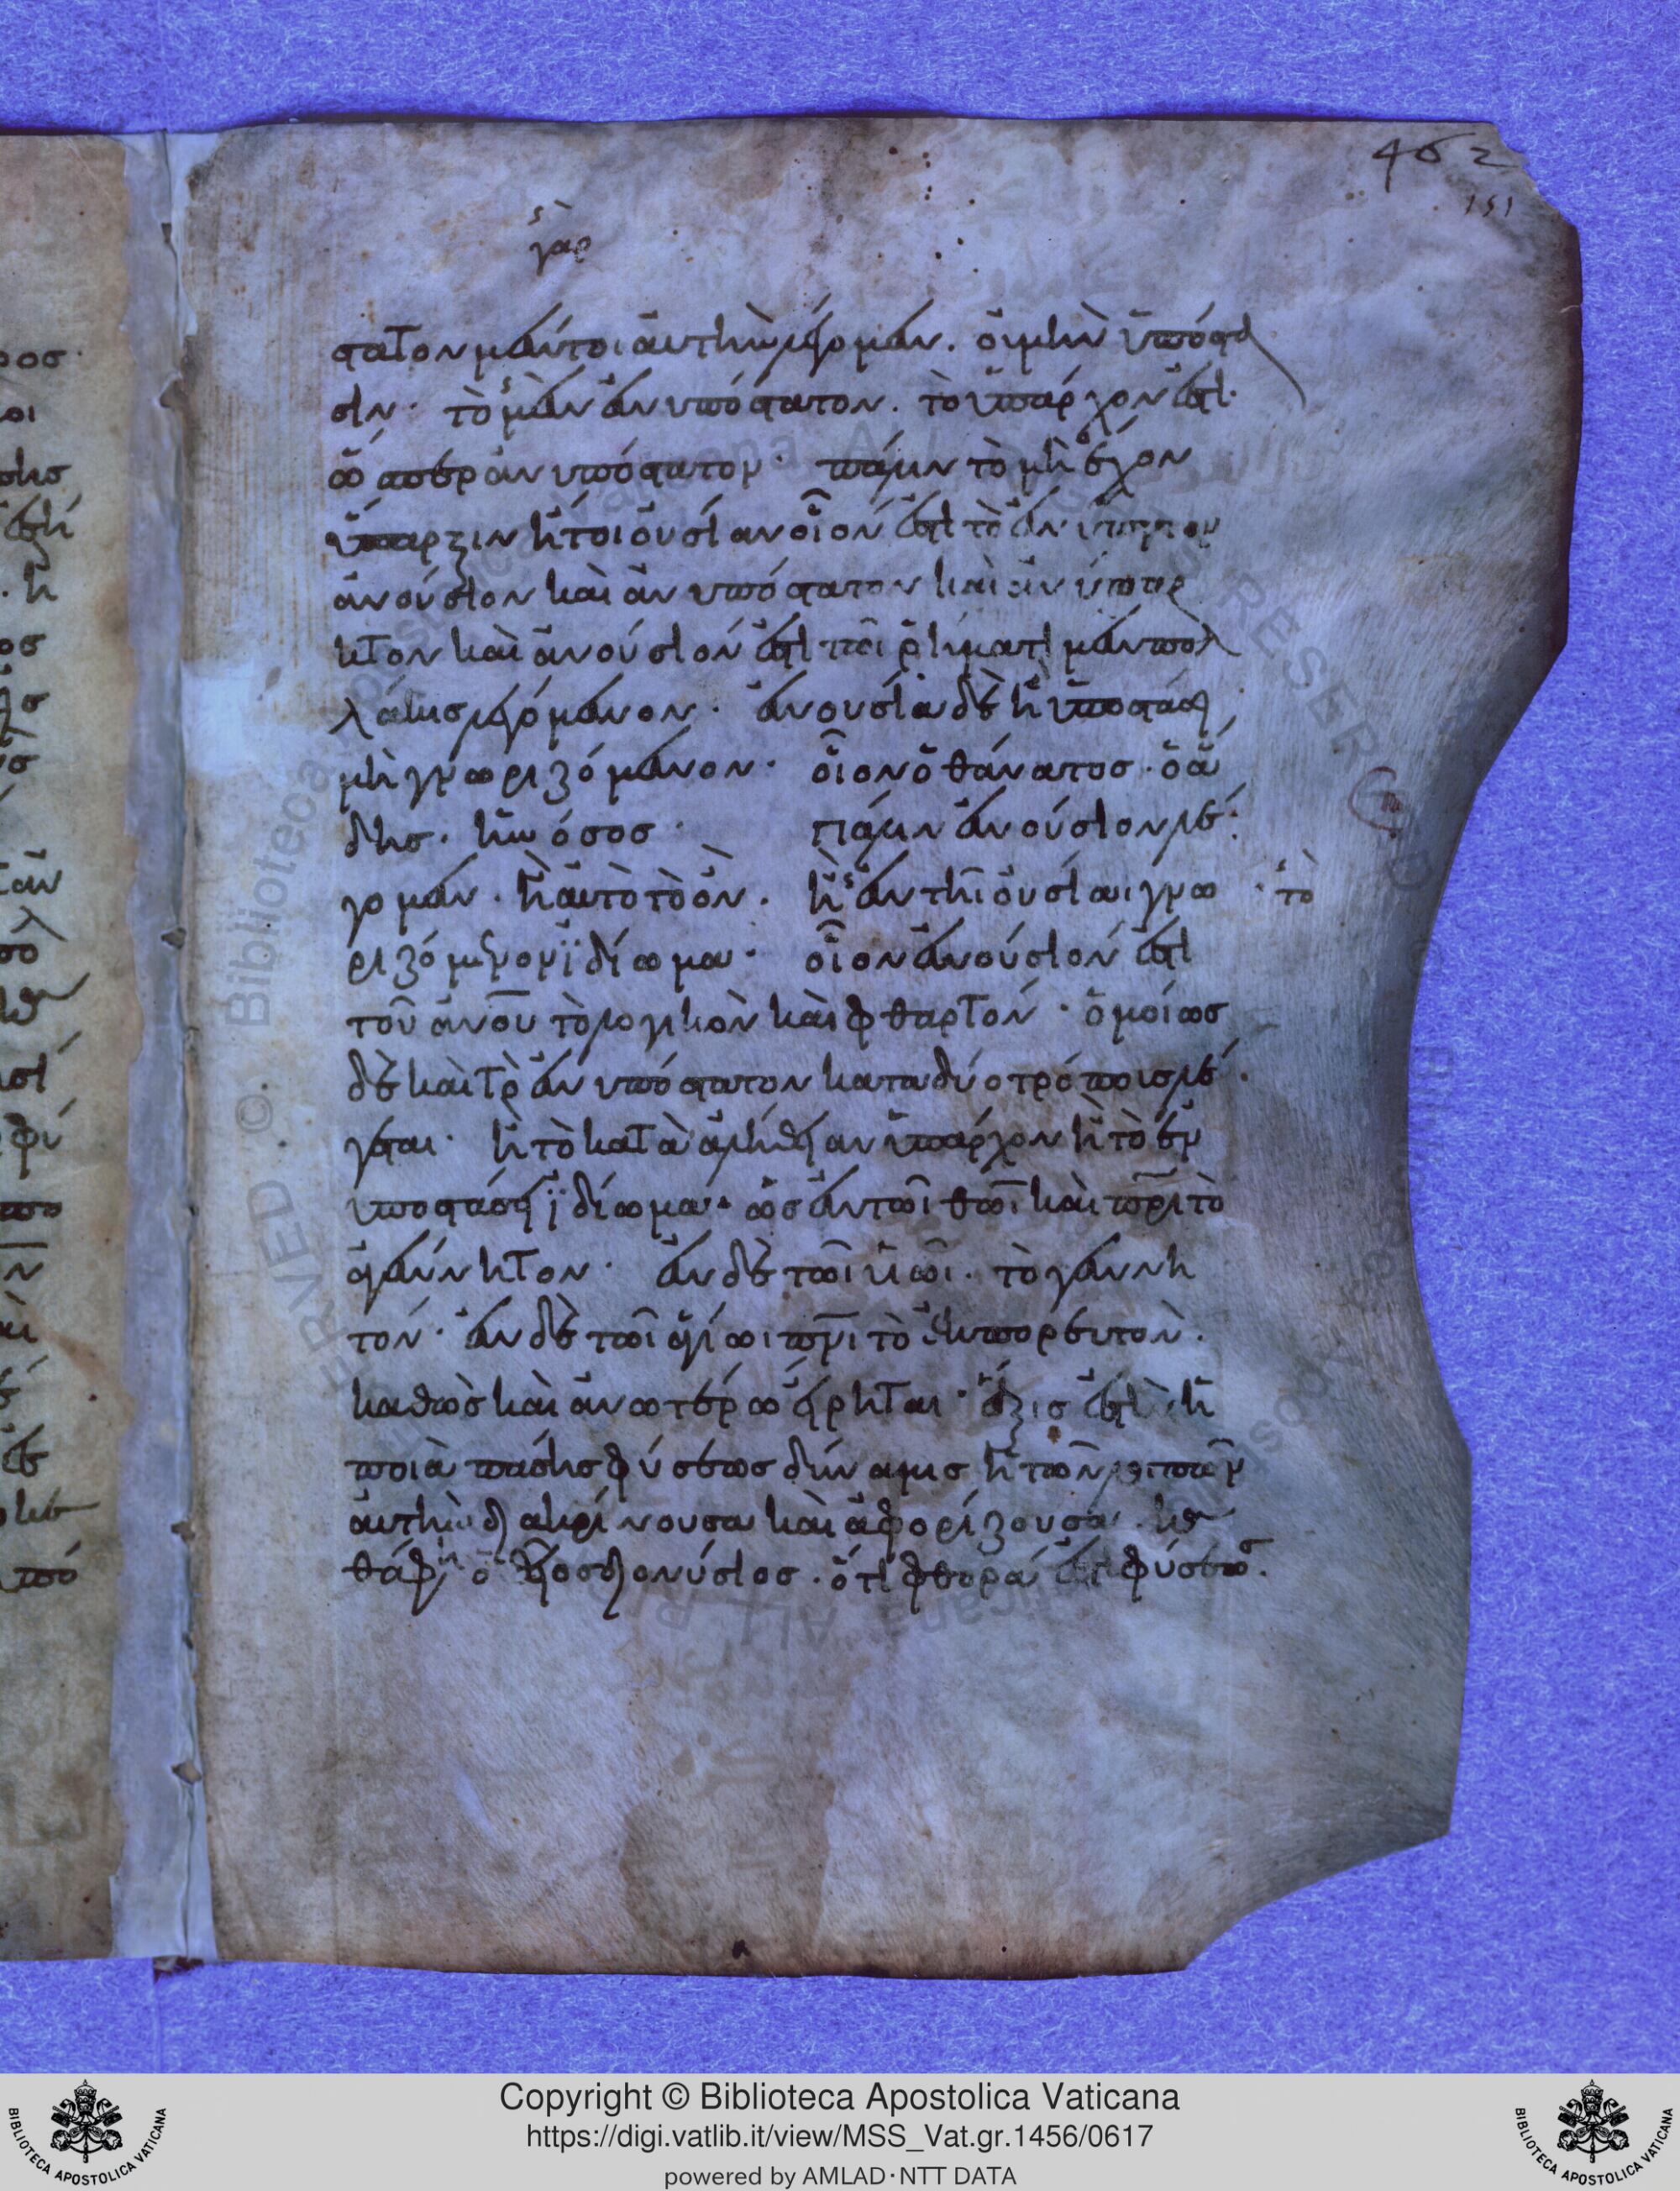 462
151
γὰρ
στατον μέντοι αὐτὴν λέγομεν. οὐ μὴν ὑπόστα
σιν. τὸ μὲν ἀνυπόστατον. τὸ ὑπάρχον ἐστί.
ἀνυπόστατον. πάλιν τὸ μὴ ἔχον
ὕπαρξιν ἤτοι οὐσίαν οἷον ἐστὶ τὸ
ἀνούσιον καὶ ἀνυπόστατον καὶ ἀνύπαρ
κτον καὶ ἀνούσιόν ἐστι τῶι ῥήματι μὲν πολ
λάκισ λεγόμενον. ἐν οὐσία δὲ ἢ ὑποστάσει
μὴ γνωριζόμενον. οἷον ὁ θάνατοσ. ὁ ἅ
δησ. ἡ νόσοσ. πάλιν ἐνούσιον λέ
γομεν. ἢ αὐτὸ τὸ ὄν. ἢ ἐν τῆι οὐσίαι γνω
τὸ
ριζόμενον ἰδίωμα. οἷον ἐνούσιόν ἐστι
τοῦ ἀνου τὸ λογικὸν καὶ φθαρτόν. ὁμοίωσ
δὲ καὶ τὸ ἐνυπόστατον κατα δύο τρόπουσ λέ
γεται. ἢ τὸ κατὰ ἀλήθειαν ὑπάρχον ἢ τὸ ἐν
ὑποστάσει ἰδίωμα. ὡσ ἐν τῶι θωι καὶ πρι τὸ
ἀγέννητον. ἐν δὲ τῶι υιωι. τὸ γεννη
τόν. ἐν δὲ τῶι ἁγίωι πνι τὸ ἐκπορευτόν.
καθὼσ καὶ ἀνωτέρω εἴρηται. ἕξισ ἐστὶν ἡ
ποιὰ πάσησ φύσεωσ δύναμισ ἢ τῶν λοιπῶν
αὐτὴν διακρίνουσα καὶ ἀφορίζουσα.
ὁ Διονύσιοσ. ὅτι φθορά ἐστι φύσεωσ.
Copyright © Biblioteca Apostolica Vaticana
https://digi.vatlib.it/view/MSS_Vat.gr.1456/0617
powered by AMLAD·NTT DATA
BIBLIOTECA APOSTOLICA VATICANA
BIBLIOTECA APOSTOLICA VATICANA